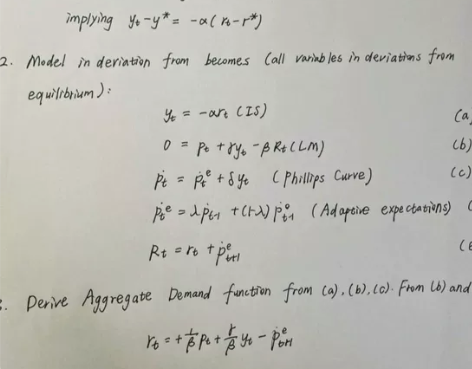 implying yt - y* = -α(rt - r*)
2. Model in deviation from becomes (all variables in deviations from
equilibrium):
yt = -αrt (IS) (a
0 = pt + γyt - βRt (LM) (b)
ṗt = ṗt^e + δyt (Phillips Curve) (c)
ṗt^e = λṗt-1 + (1-λ)ṗt-1^e (Adaptive expectations) (
Rt = rt + ṗt+1^e (
. Derive Aggregate Demand function from (a), (b), (c). From (b) and
rt = +1/β pt + γ/β yt - ṗt+1^e